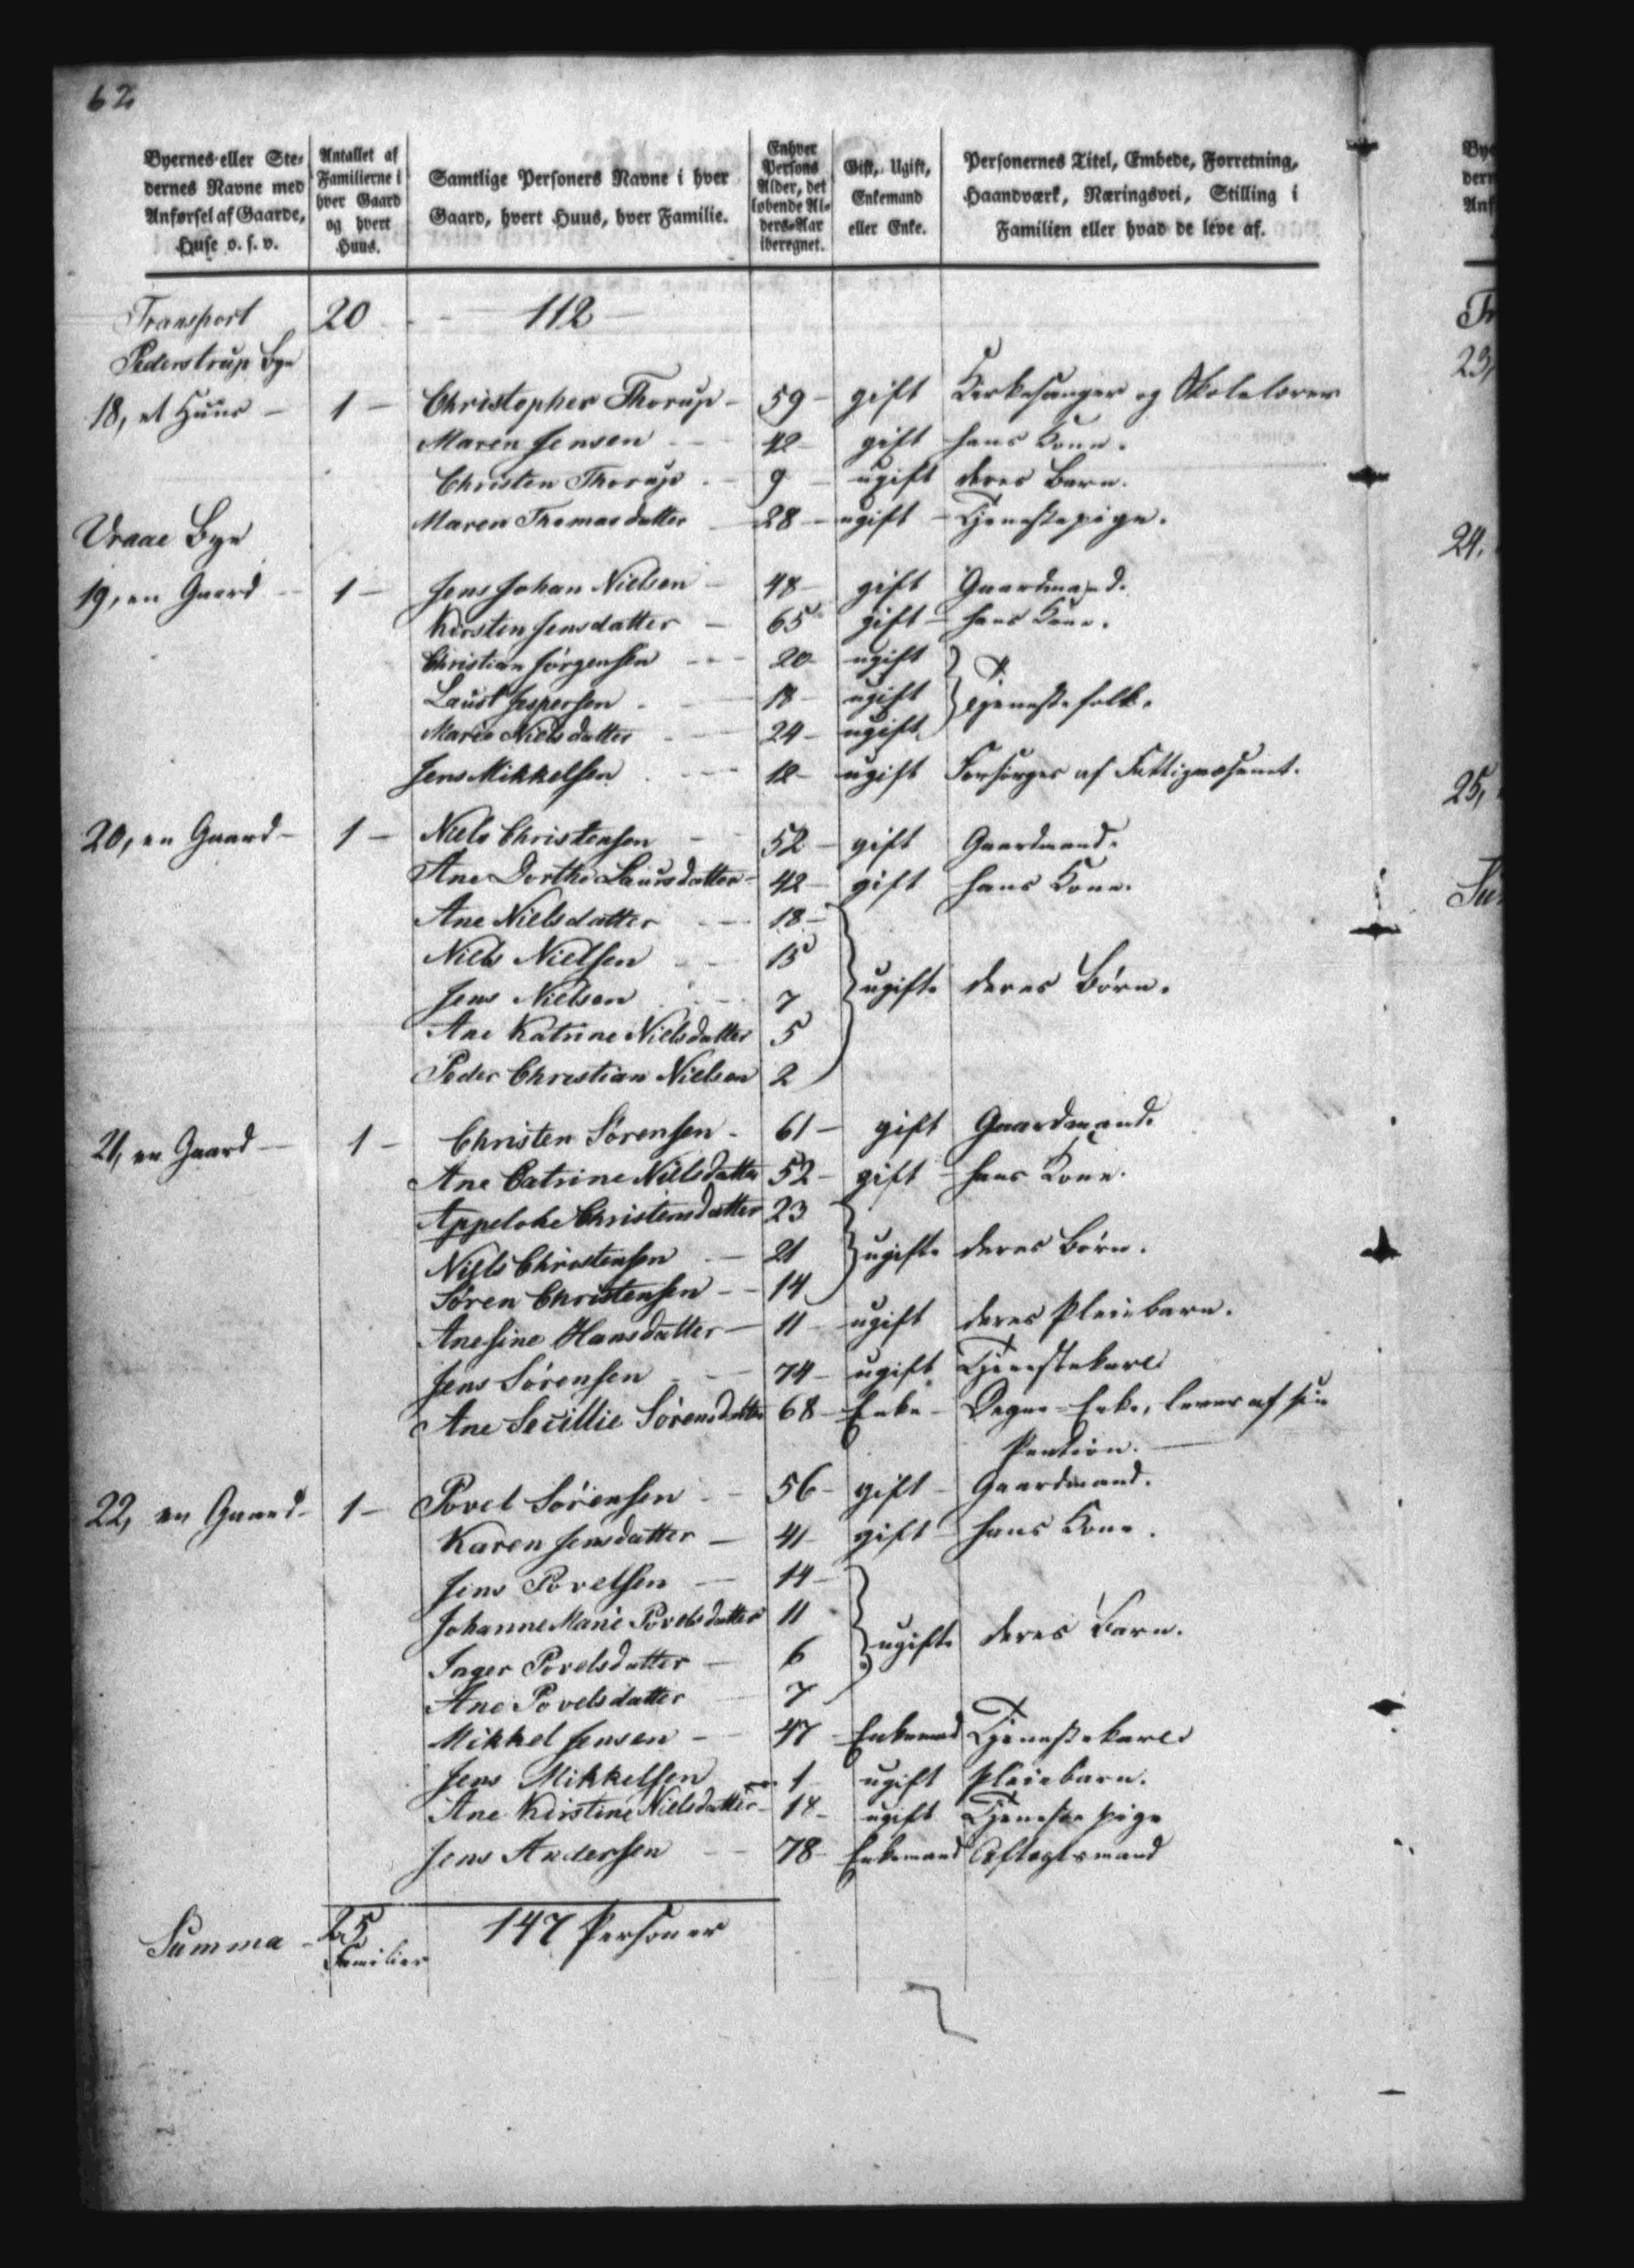 62
Byernes eller Stedernes Navne med Anførsel af Gaarde, Huse o. s. v. | Antallet af Familierne i hver Gaard og hvert Huus. | Samtlige Personers Navne i hver Gaard, hvert Huus, hver Familie. | Enhver Persons Alder, det løbende Alders-Aar iberegnet. | Gift, Ugift, Enkemand eller Enke. | Personernes Titel, Embede, Forretning, Haandværk, Næringsvei, Stilling i Familien eller hvad de leve af.
Transport 20 - - 112
Pederstrup Bye
18, et Huus - 1 - Christopher Thorup - 59 - gift Kirkesanger og Skolelærer
Maren Jensen - 42 - gift hans Kone.
Christen Thorup - 9 - ugift deres Barn.
Maren Thomasdatter - 28 - ugift - Tjenestepige.
Vraae Bye
19, en Gaard - 1 - Jens Johan Nielsen - 48 - gift Gaardmand.
Kirsten Jensdatter - 65 gift - hans Kone.
Christian Jörgensen - 20 - ugift
Laust Jespersen - 18 - ugift } Tjenestefolk.
Marie Nielsdatter - 24 - ugift
Jens Mikkelsen - 12 - ugift Forsörges af Fattigvæsenet.
20, en Gaard - 1 - Niels Christensen - 52 - gift Gaardmand.
Ane Dorthe Laursdatter - 42 - gift hans Kone.
Ane Nielsdatter - 18 -
Niels Nielsen - 15
Jens Nielsen - 7 } ugifte deres Börn.
Ane Katrine Nielsdatter 5
Peder Christian Nielsen 2
21, en Gaard - 1 - Christen Sörensen - 61 - gift Gaardmand.
Ane Catrine Nielsdatter 52 - gift - hans Kone.
Appelohe Christensdatter 23
Niels Christensen - 21 } ugifte deres Börn.
Sören Christensen - 14
Anesine Hansdatter - 11 - ugift deres Pleiebarn.
Jens Sörensen - 74 - ugift Tjenestekarl
Ane Secillie Sörensdatter 68 - Enke - Degne-Enke, lever af sin
Pention.
22, en Gaard - 1 - Povel Sörensen - 56 - gift - Gaardmand.
Karen Jensdatter - 41 - gift - hans Kone.
Jens Povelsen - 14 -
Johanne Marie Povelsdatter 11
Inger Povelsdatter - 6 } ugifte deres Barn.
Ane Povelsdatter 7
Mikkel Jensen - 47 - Enkemand Tjenestekarl
Jens Mikkelsen - 1 - ugift Pleiebarn.
Ane Kirstine Nielsdatter - 18 - ugift Tjeneste pige
Jens Andersen - 78 - Enkemand Aftægtsmand
Summa - 25 Familier 147 Personer